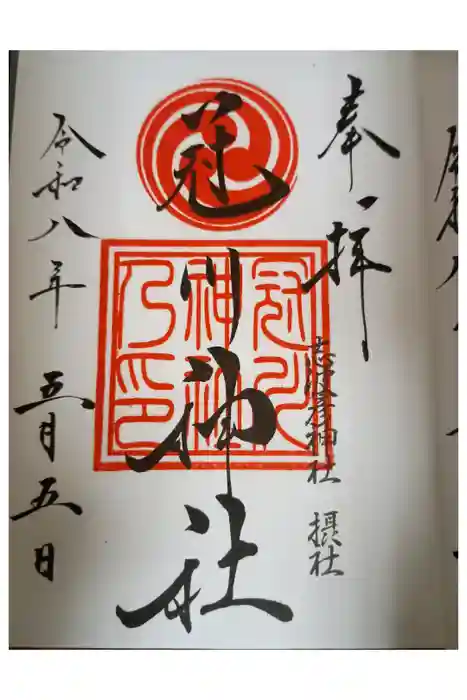 奉拝
志波彦神社 摂社
冠川神社
冠川
神社
乃印
令和八年 五月五日